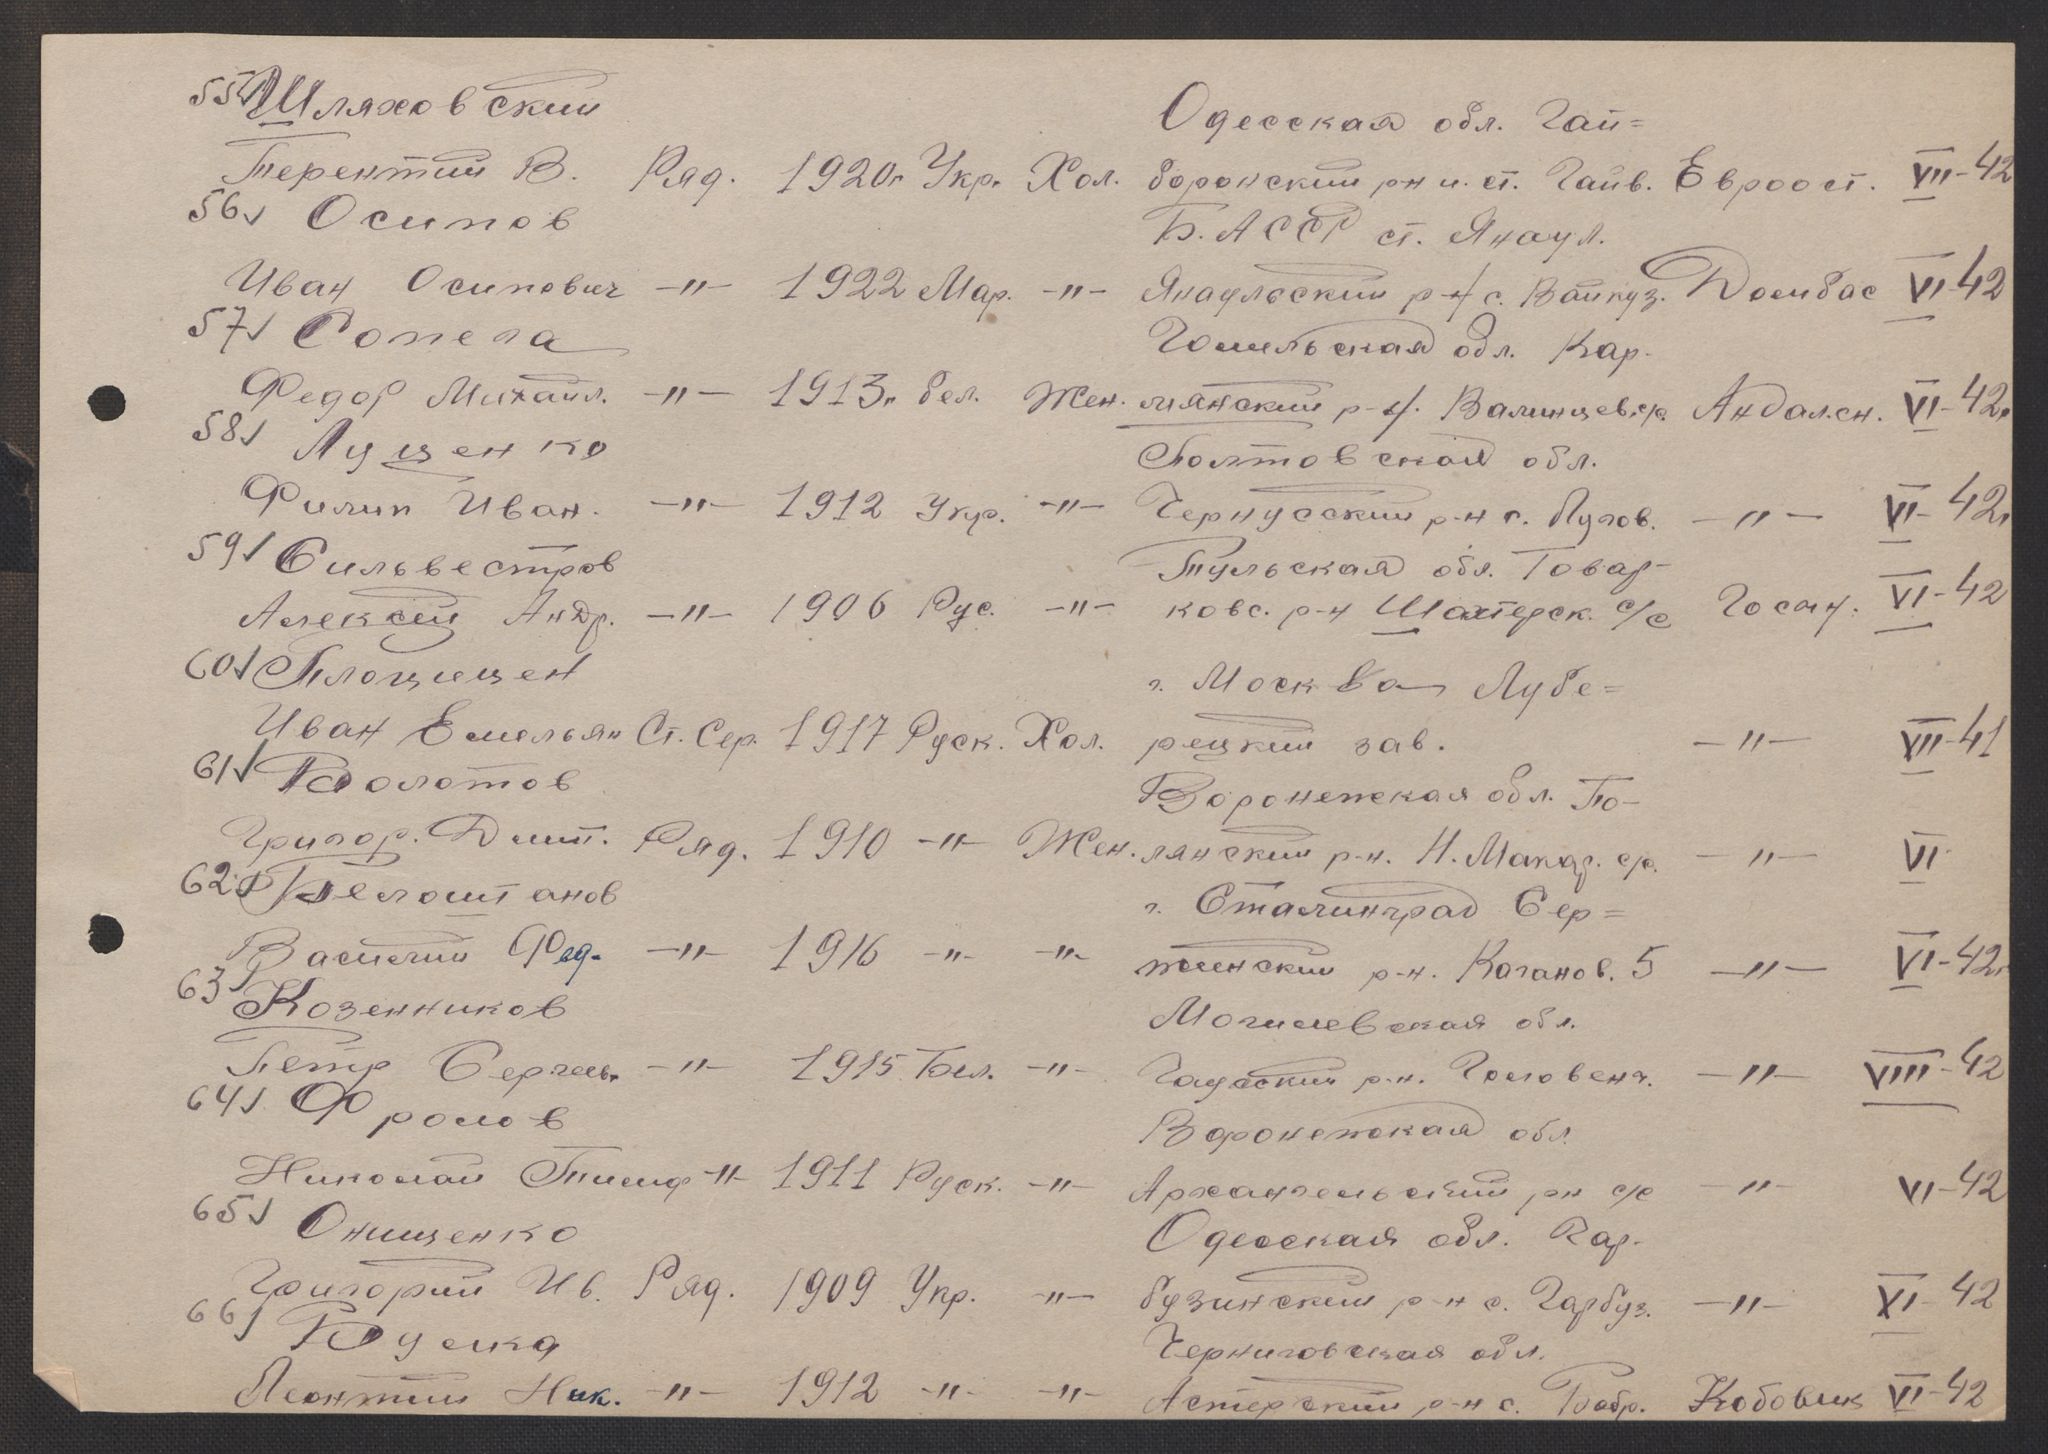 55 Шляховский Одесская обл. Гай=
Терентий В. Ряд. 1920г Укр. Хол. воронский рн и. ст. Гайв. Евроост. VII-42
56 Осипов Б. АССР ст. Янаул.
Иван Осипович -"- 1922 Мар. -"- Янаульский р-н с. Вайкуз. Домбас VI-42
57 Сопега Гомельская обл. Кар-
Федор Михайл. -"- 1913г бел. Жен. млянский р-н. Валинцев. с/с. Андалсн. VI-42г
58 Лущенко Полтовская обл.
Филип Иван. -"- 1912 Укр. -"- Чернусский р-н с. Лугов. -"- VI-42г
59 Сильвестров Тульская обл. Товар-
Алексей Андр. -"- 1906 Рус. -"- ковс. р-н Шахтерск. с/с Госан. VI-42
60 Плоцицен г. Москва Любе=
Иван Емельян Ст. Сер. 1917 Руск. Хол. рецкий зав. -"- VII-41
61 Болотов Воронежская обл. По-
Григор. Дмит. Ряд. 1910 -"- Жен. лянский р-н. Н. Макар. с/с. -"- VI
62 Белоштанов г. Сталинград Сер=
Василий Фед. -"- 1916 -"- -"- жинский р-н. Каганов. 5 -"- VI-42г
63 Козенников Могилевская обл.
Петр Сергеев. -"- 1915 Бел. -"- р-н. Головенч. -"- VIII-42
64 Фролов Воронежская обл.
Николай Тимоф -"- 1911 Руск. -"- Архангельский рн с/с -"- VI-42
65 Онищенко Одесская обл. Гар-
Григорий Ив. Ряд. 1909 Укр. -"- бузинский р-н с. Гарбуз. -"- XI-42
66 Буска Черниговская обл.
Леонтий Ник. -"- 1912 -"- -"- Астерский р-н с. Бобр. Кобовик VI-42